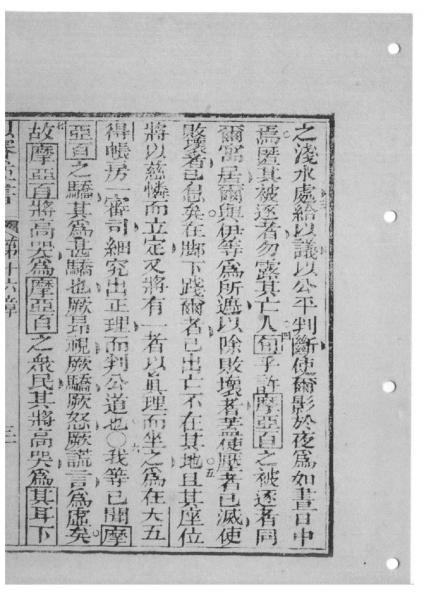 之淺水處給以議以公平判斷使爾影於夜為如晝日中
焉匿其被逐者勿露其亡人旬乎許摩亞百之被逐者同
爾寓居爾與伊等為所遮以除敗壞者葢使壓者已滅使
敗壞者已息矣在腳下踐爾者已出亡不在其地且其座位
將以慈憐而立定又將有一者以眞理而坐之為在大五
得帳房一審司細究出正理而判公道也〇我等已聞摩
亞百之驕其為甚驕也厥昂視厥驕厥怒厥謊言為虛矣
故摩亞百將高哭為摩亞百之衆民其將高哭為其耳下
第十六章 三